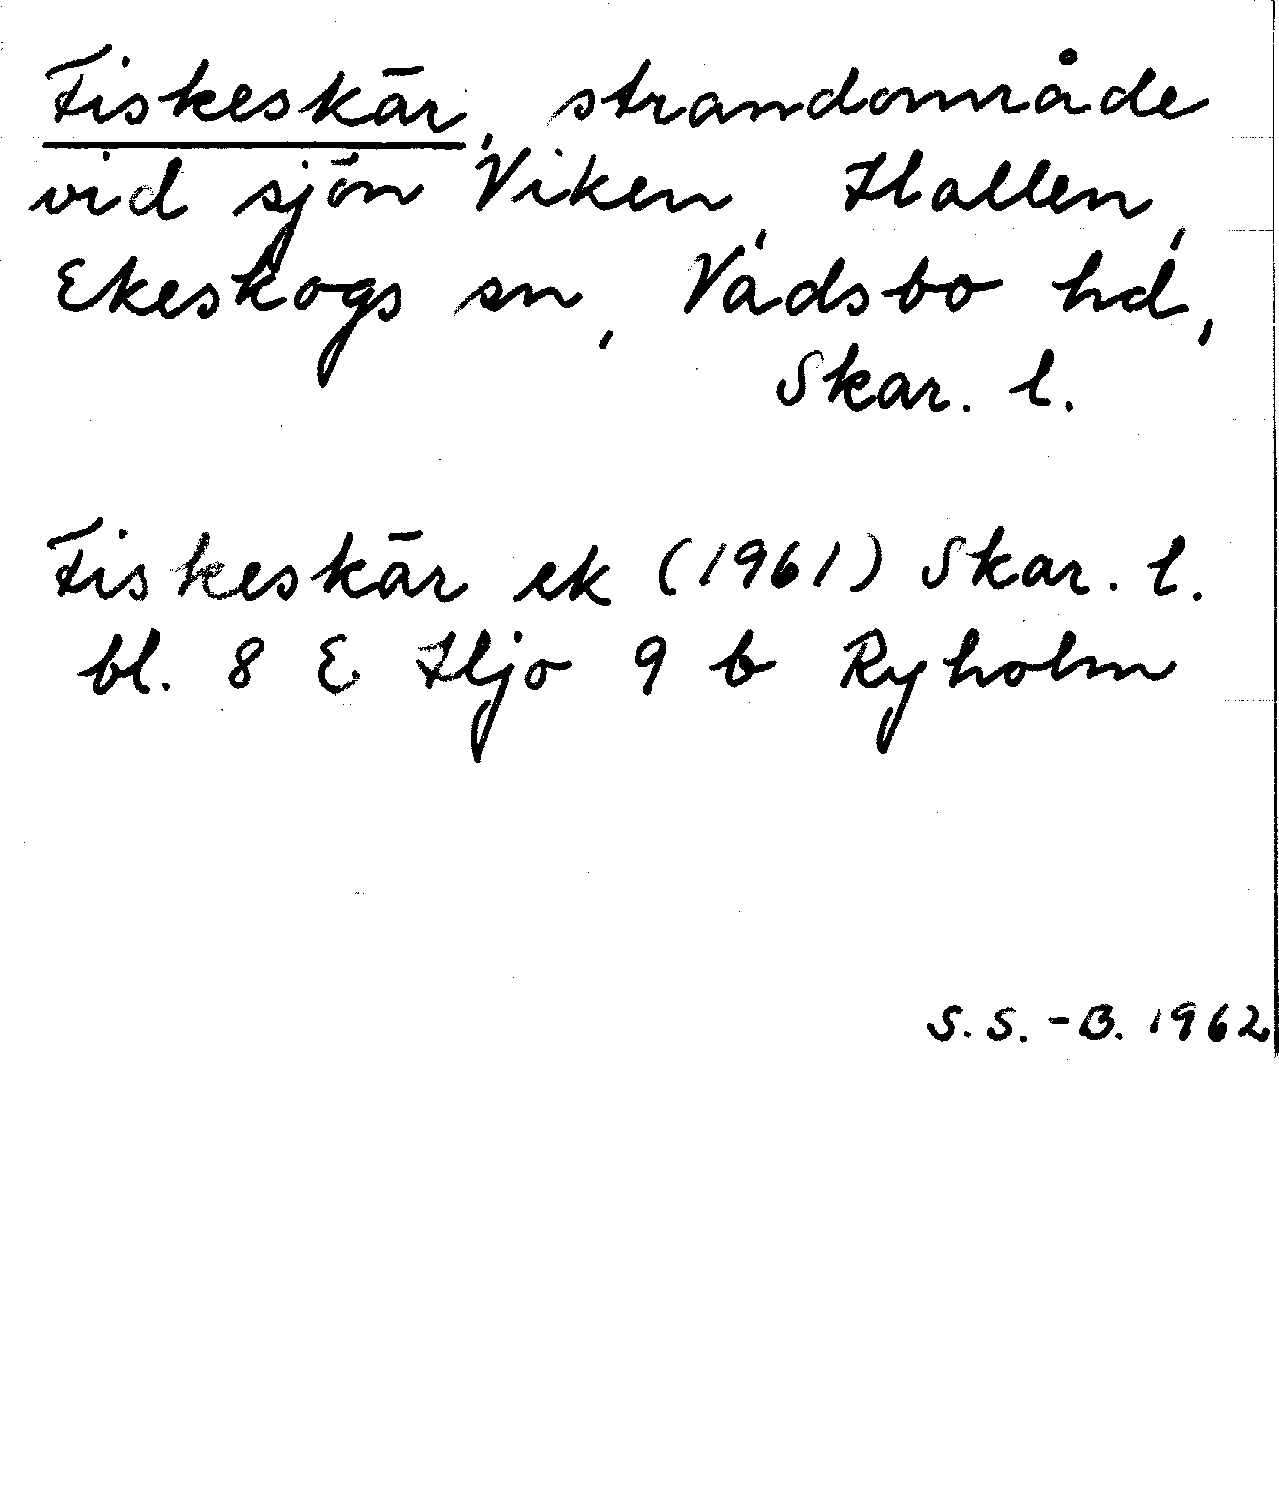 Fiskeskär, strandområde
vid sjön Viken, Hallen,
Ekeskogs sn, Vadsbo hd,
Skar. l.
Fiskeskär ek (1961) Skar. l.
bl. 8 E Hjo 9 b Ryholm
S. S. - B. 1962